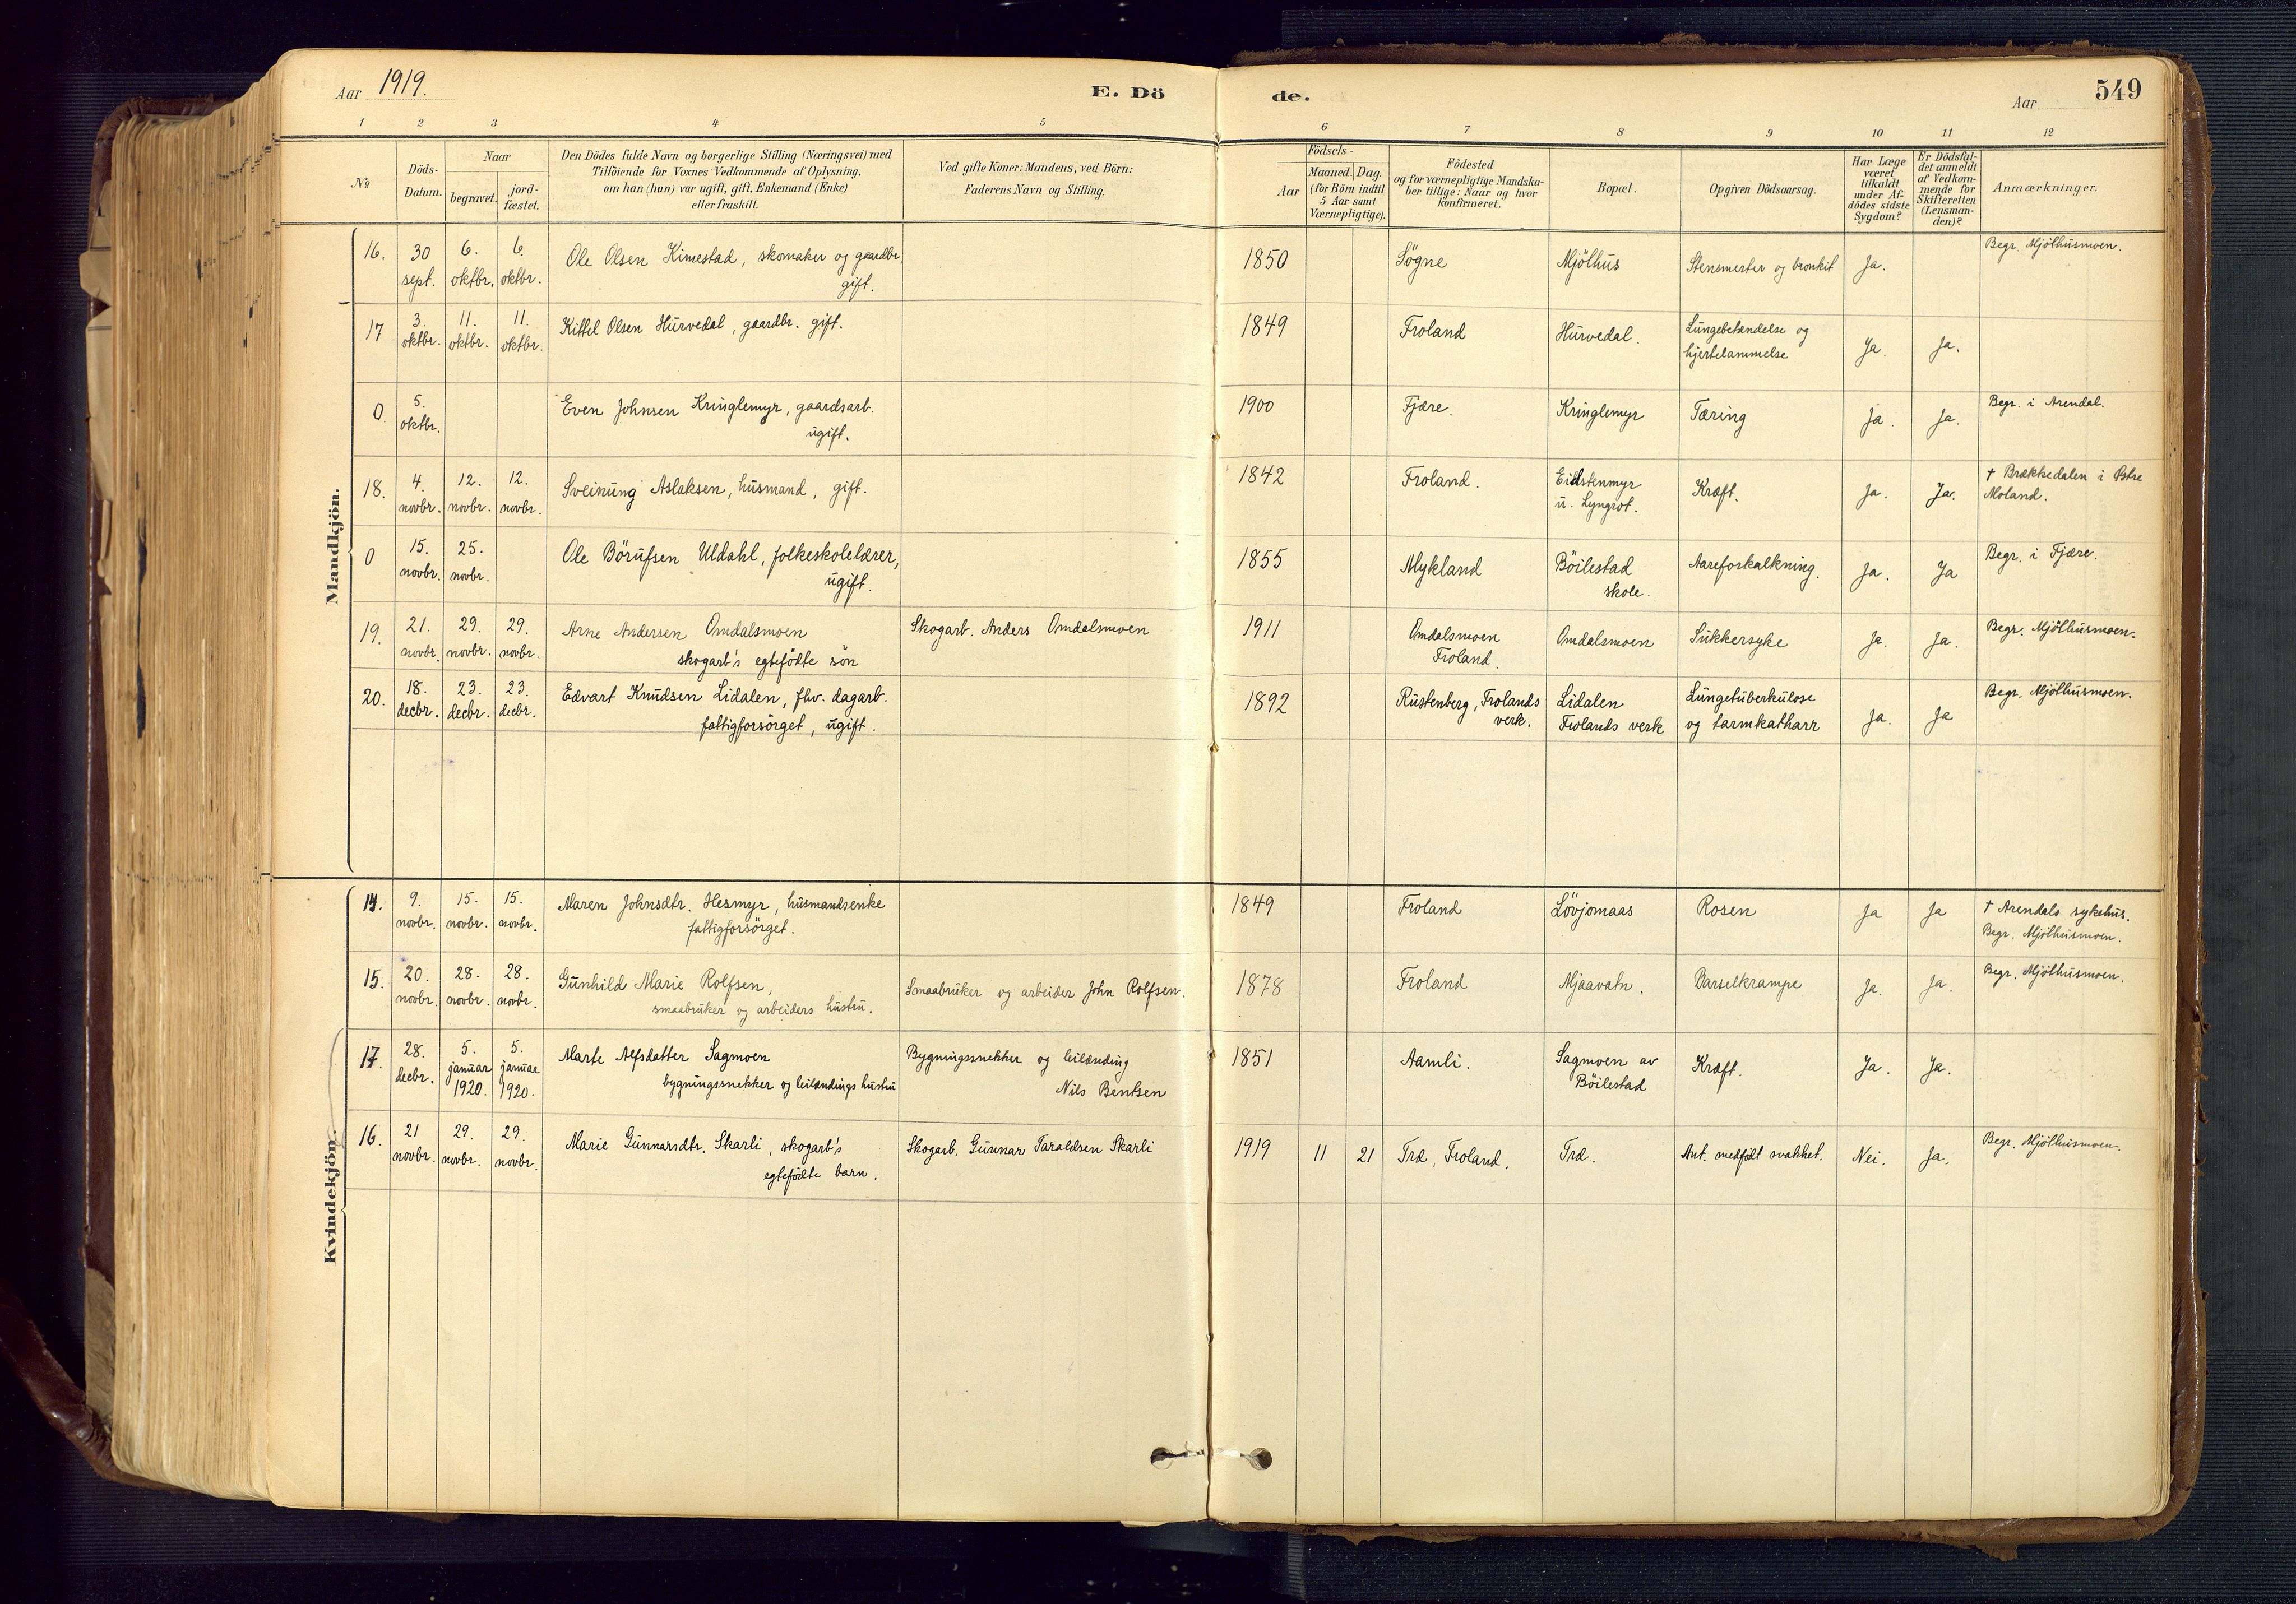 Aar 1919.
E. Dö
de.
Aar
549
1 2 3 4 5 6 7 8 9 10 11 12
No
Döds-
Datum.
Naar
begravet.
jord-
fæstet.
Den Dödes fulde Navn og borgerlige Stilling (Næringsvei) med
Tilföiende for Voxnes Vedkommende af Oplysning,
om han (hun) var ugift, gift, Enkemand (Enke)
eller fraskilt.
Ved gifte Koner: Mandens, ved Börn:
Faderens Navn og Stilling.
Födsels-
Aar
Maaned. Dag.
(for Börn indtil
5 Aar samt
Værnepligtige).
Födested
og for værnepligtige Mandska-
ber tillige: Naar og hvor
konfirmeret.
Bopæl.
Opgiven Dödsaarsag.
Har Læge
været
tilkaldt
under Af-
dödes sidste
Sygdom?
Er Dödsfal-
det anmeldt
af Vedkom-
mende for
Skifteretten
(Lensman-
den)?
Anmærkninger.
Mandkjön.
16. 30 sept. 6. oktbr. 6. oktbr. Ole Olsen Kimestad, skomaker og gaardbr. gift. 1850 Søgne Mjölhus Stensmerter og bronkit Ja. Begr. Mjölhusmoen.
17 3. oktbr. 11. oktbr. 11. oktbr. Kittel Olsen Hurvedal, gaardbr. gift. 1849 Froland Hurvedal. Lungebetændelse og hjertelammelse Ja. Ja.
0. 5. oktbr. Even Johnsen Kringlemyr, gaardsarb. ugift. 1900 Fjære. Kringlemyr Tæring Ja. Ja. Begr. i Arendal.
18. 4. novbr. 12. novbr. 12. novbr. Sveinung Aslaksen, husmand, gift. 1842 Froland. Eidstenmyr u. Lyngrot. Kræft. Ja. Ja. † Brækkedalen i Østre Moland.
0 15. novbr. 25. novbr. Ole Börufsen Uldahl, folkeskolelærer, ugift. 1855 Mykland Böilestad skole. Aareforkalkning. Ja. Ja Begr. i Fjære.
19. 21. novbr. 29. novbr. 29. novbr. Arne Andersen Omdalsmoen skogarb's egtefödte sön Skogarb. Anders Omdalsmoen 1911 Omdalsmoen Froland. Omdalsmoen Sukkersyke Ja. Ja. Begr. Mjölhusmoen.
20. 18. decbr. 23. decbr. 23. decbr. Edvart Knudsen Lidalen, fhv. dagarb. fattigforsörget, ugift. 1892 Rustenberg, Frolands verk. Lidalen Frolands verk Lungetuberkulose og tarmkatharr Ja. Ja Begr. Mjölhusmoen.
Kvindekjön.
14. 9. novbr. 15. novbr. 15. novbr. Maren Johnsdtr. Hesmyr, husmandsenke fattigforsörget. 1849 Froland Lövjomaas Rosen Ja Ja † Arendals sykehus. Begr. Mjölhusmoen.
15. 20. novbr. 28. novbr. 28. novbr. Gunhild Marie Rolfsen, smaabruker og arbeiders hustru. Smaabruker og arbeider John Rolfsen. 1878 Froland Mjaavatn. Barselkrampe Ja. Ja. Begr. Mjölhusmoen.
17. 28. decbr. 5. januar 1920. 5. januar 1920. Marte Alfsdatter Sagmoen bygningssnekker og leilændings hustru Bygningssnekker og leilænding Nils Bentsen 1851 Aamli. Sagmoen av Böilestad Kræft. Ja. Ja.
16. 21 novbr. 29. novbr. 29. novbr. Marie Gunnarsdtr. Skarli, skogarb's egtefödte barn. Skogarb. Gunnar Taraldsen Skarli 1919 11 21 Træ, Froland. Træ. Ant. medfödt svakhet. Nei. Ja. Begr. Mjölhusmoen.